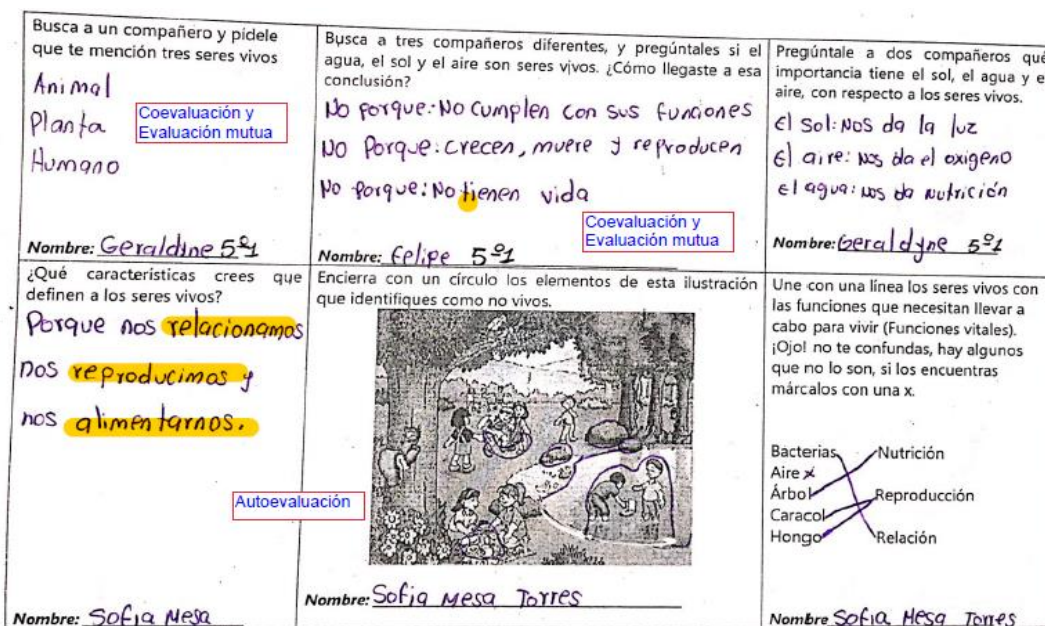 Busca a un compañero y pidele
que te mención tres seres vivos
Animal
Planta
Humano
Coevaluación y
Evaluación mutua
Nombre: Geraldine 5º1
Busca a tres compañeros diferentes, y pregúntales si el
agua, el sol y el aire son seres vivos. ¿Cómo llegaste a esa
conclusión?
No porque: No cumplen con sus funciones
No Porque: crecen, muere y reproducen
No porque: No tienen vida
Coevaluación y
Evaluación mutua
Nombre: Felipe 5º1
Pregúntale a dos compañeros qué
importancia tiene el sol, el agua y e
aire, con respecto a los seres vivos.
El Sol: Nos da la luz
El aire: Nos da el oxigeno
El agua: Nos da nutrición
Nombre: Geraldyne 5º1
¿Qué características crees que
definen a los seres vivos?
Porque nos relacionamos
nos reproducimos y
nos alimentarnos.
Autoevaluación
Nombre: Sofia Mesa
Encierra con un círculo los elementos de esta ilustración
que identifiques como no vivos.
Nombre: Sofia Mesa Torres
Une con una línea los seres vivos con
las funciones que necesitan llevar a
cabo para vivir (Funciones vitales).
¡Ojo! no te confundas, hay algunos
que no lo son, si los encuentras
márcalos con una x.
Bacterias Nutrición
Aire x
Árbol Reproducción
Caracol
Hongo Relación
Nombre Sofia Mesa Torres